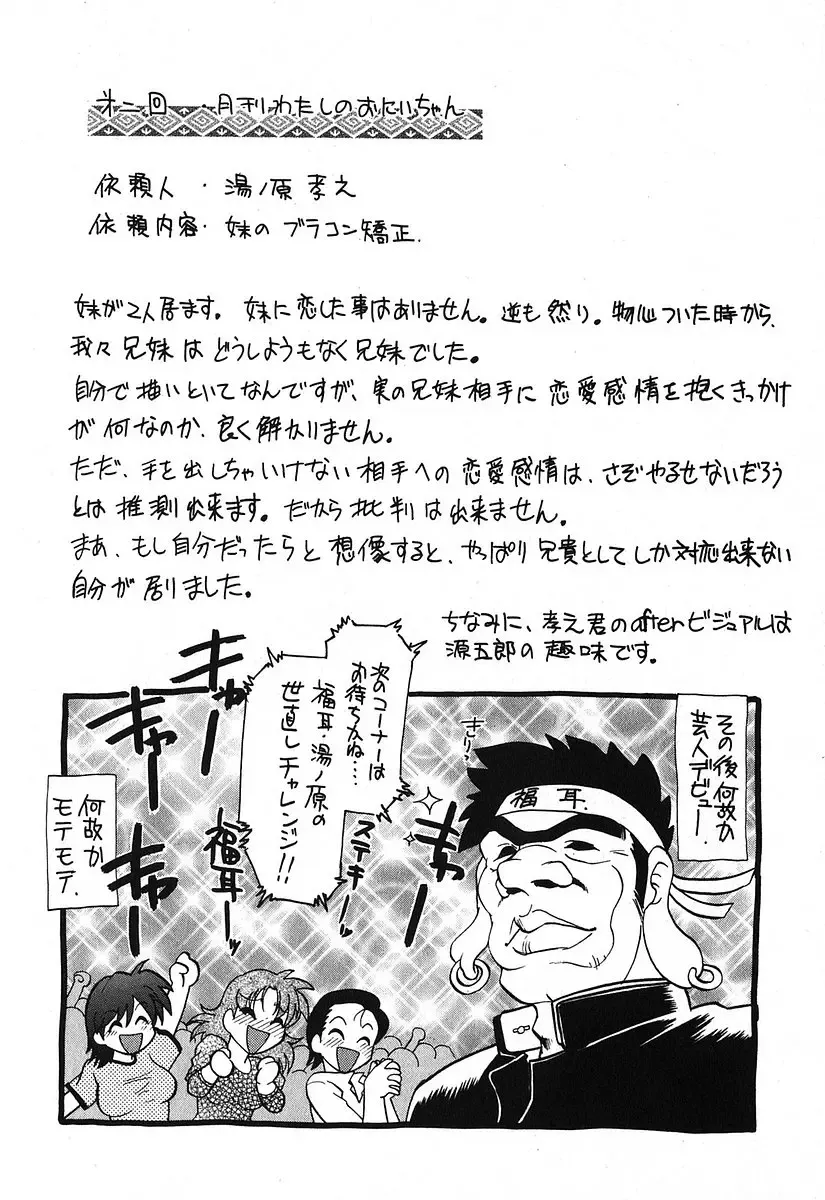 第二回・月刊わたしのおにいちゃん
依頼人・湯ノ原孝之
依頼内容・妹のブラコン矯正.
妹が2人居ます。妹に恋した事はありません。逆も然り。物心ついた時から、
我々兄妹はどうしようもなく兄妹でした。
自分で描いといてなんですが、実の兄妹相手に恋愛感情を抱くきっかけ
が何なのか、良く解かりません。
ただ、手を出しちゃいけない相手への恋愛感情は、さぞやるせないだろう
とは推測出来ます。だから批判は出来ません。
まあ、もし自分だったらと想像すると、やっぱり兄貴としてしか対応出来ない
自分が居りました。
ちなみに、孝之君のafterビジュアルは
源五郎の趣味です。
その後何故か
芸人デビュー.
きりっ
福耳.
次のコーナーは
お待ちかね…
福耳・湯ノ原の
世直しチャレンジ!!
キャー
キャー
キャー
キャー
ステキーッ
福耳ーッ
何故か
モテモテ.